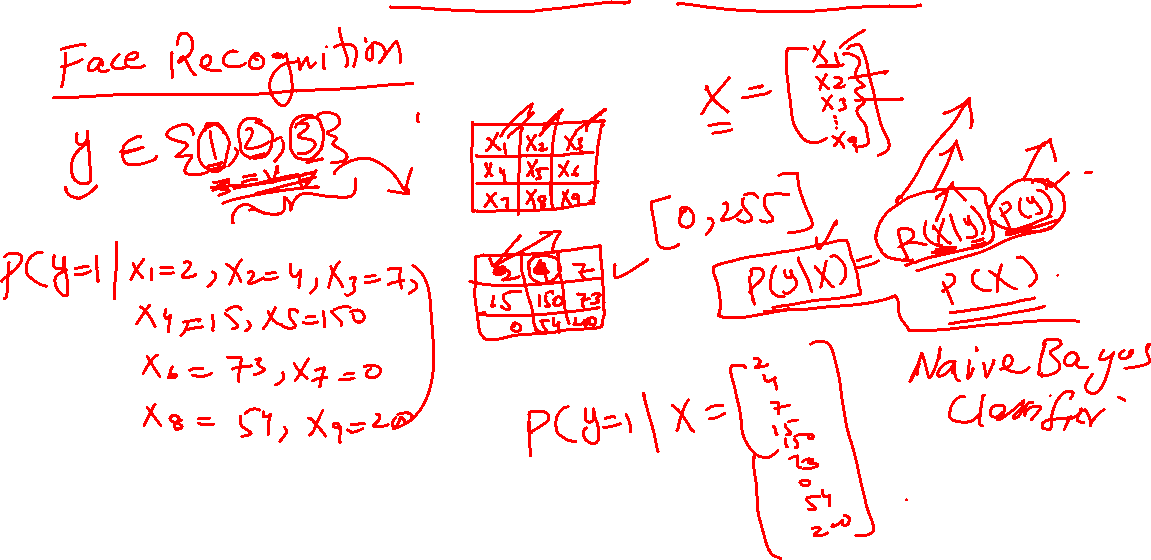 Face Recognition
y ∈ {1, 2, 3}
P(y=1 | X1=2, X2=4, X3=7,
X4=15, X5=150
X6=73, X7=0
X8=54, X9=200
X1 X2 X3
X4 X5 X6
X7 X8 X9
2 4 7
15 150 73
0 54
[0,255]
X = [X1
X2
X3
⋮
X9]
P(y|X) = P(X|y) P(y)
P(X)
Naive Bayes
Classifier
P(y=1 | X = [2
4
7
15
150
73
0
54
200]